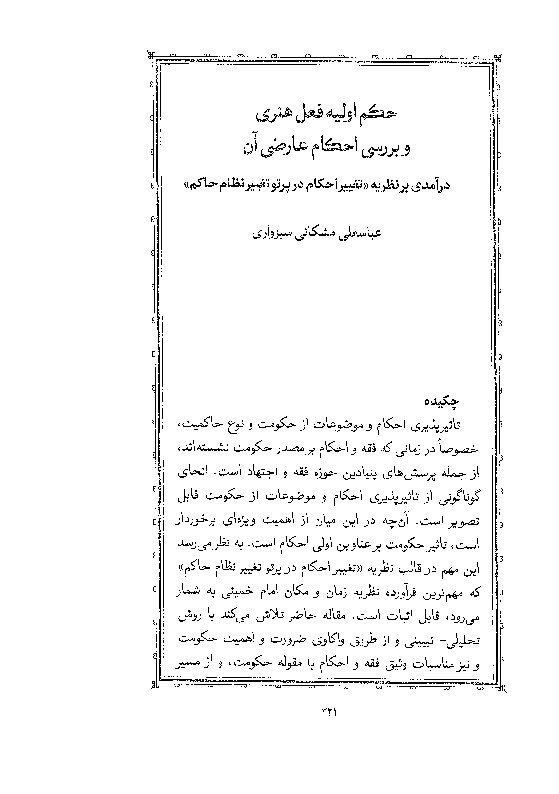 حکم اولیه فعل هنری
و بررسی احکام عارضی آن
درآمدی بر نظریه «تغییر احکام در پرتو تغییر نظام حاکم»
عباسعلی مشکانی سبزواری
چکیده
تاثیرپذیری احکام و موضوعات از حکومت و نوع حاکمیت،
خصوصاً در زمانی که فقه و احکام بر مصدر حکومت نشسته‌اند،
از جمله پرسش‌های بنیادین حوزه فقه و اجتهاد است. انحای
گوناگونی از تاثیرپذیری احکام و موضوعات از حکومت قابل
تصویر است. آن‌چه در این میان از اهمیت ویژه‌ای برخوردار
است، تاثیر حکومت بر عناوین اولی احکام است. به نظر می‌رسد
این مهم در قالب نظریه «تغییر احکام در پرتو تغییر نظام حاکم»
که مهم‌ترین فرآورده نظریه زمان و مکان امام خمینی به شمار
می‌رود، قابل اثبات است. مقاله حاضر تلاش می‌کند با روش
تحلیلی- تبیینی و از طریق واکاوی ضرورت و اهمیت حکومت
و نیز مناسبات وثیق فقه و احکام با مقوله حکومت، و از مسیر
۳۲۱